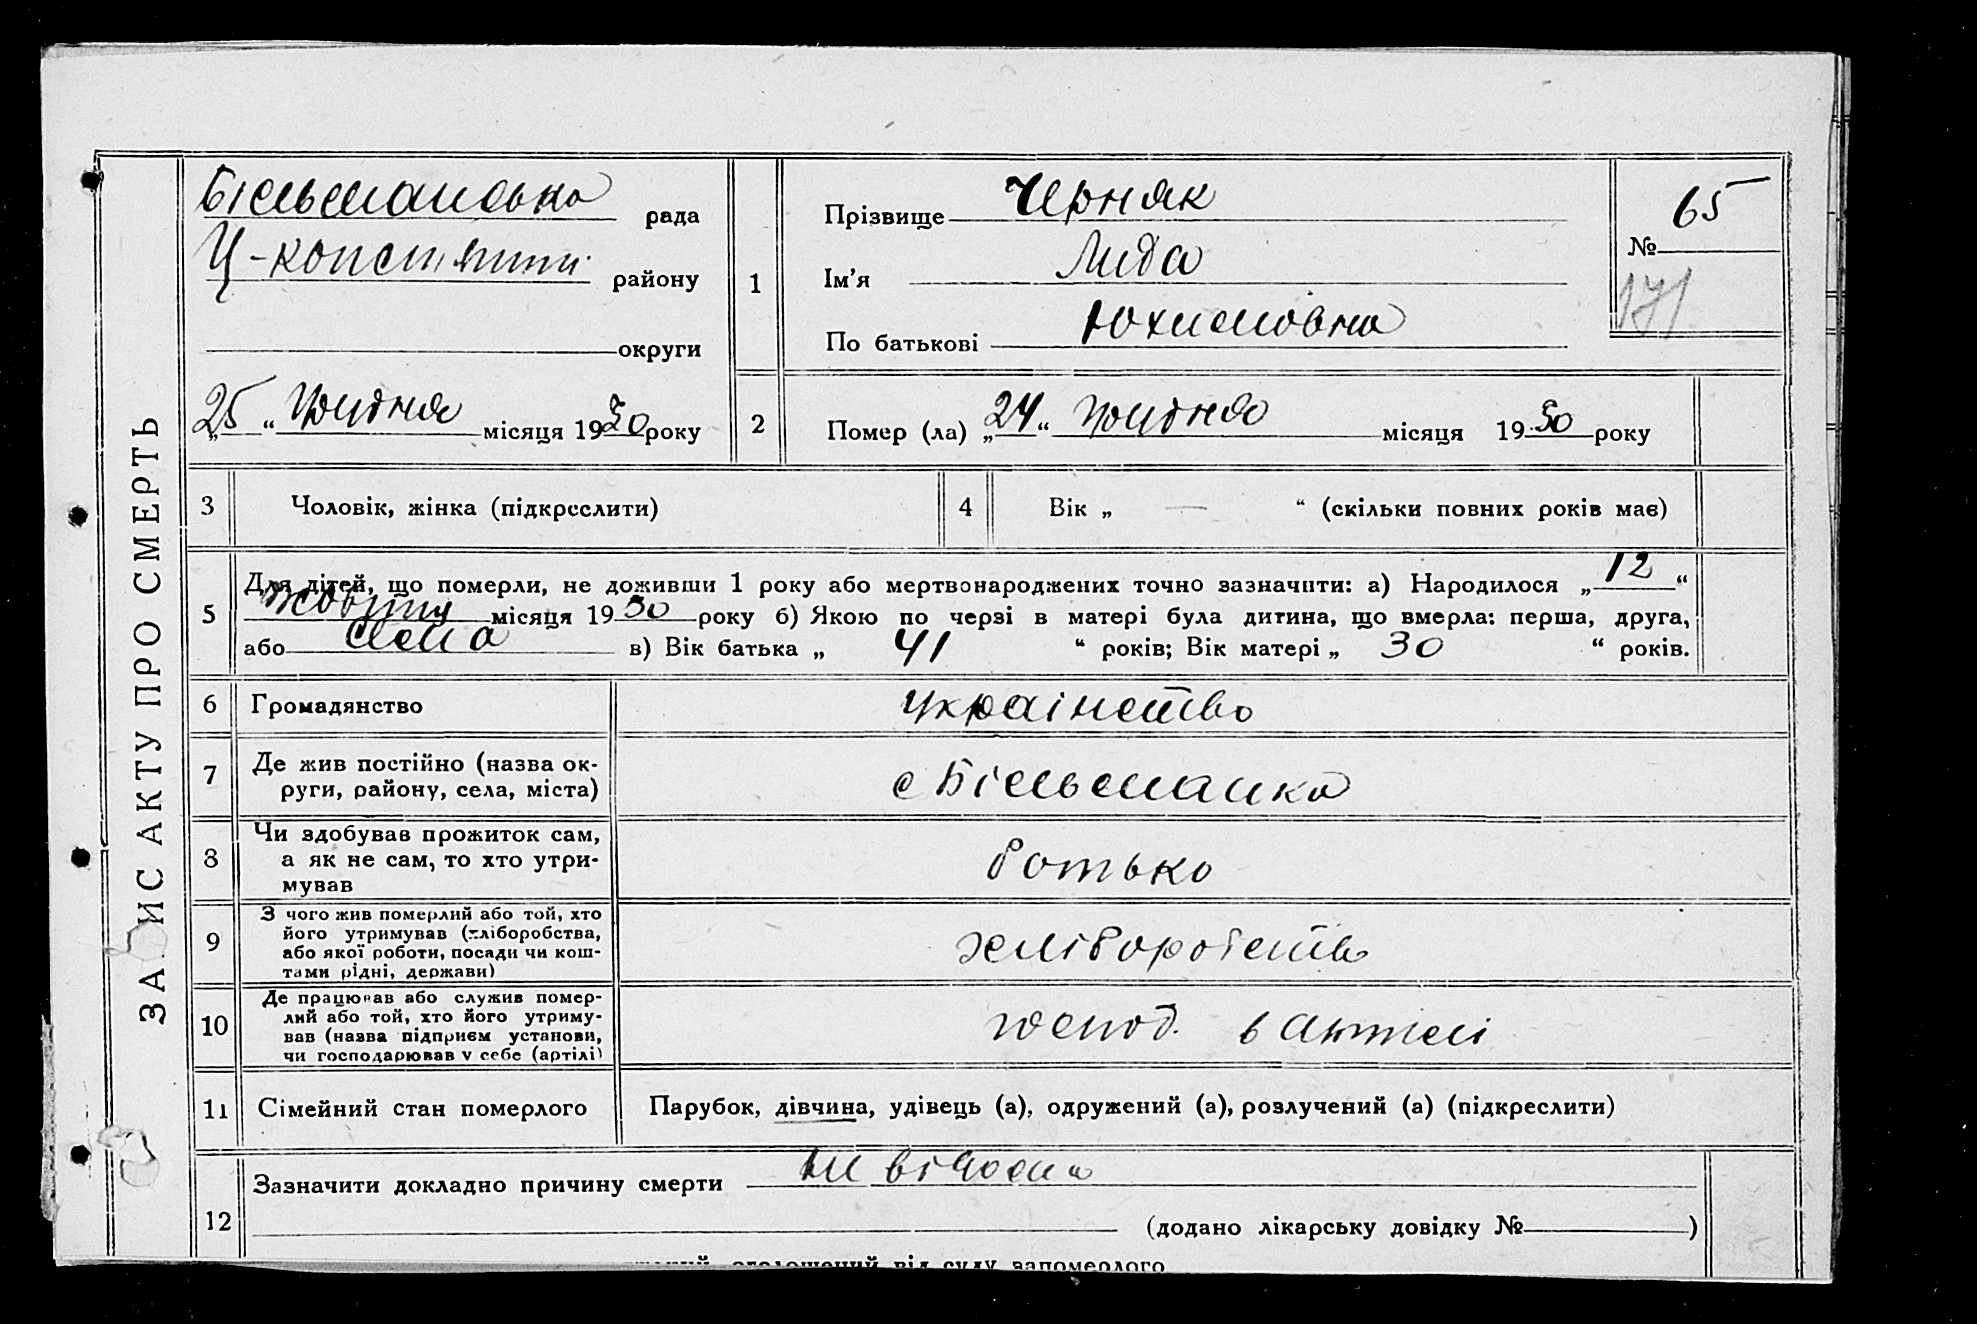 ЗАПИС АКТУ ПРО СМЕРТЬ
Більманська рада
Ц-констянтин. району
округи
„25“ Грудня місяця 1930 року
1
Прізвище Черняк
Ім’я Лида
По батькові Юхимовна
№ 65
171
2
Помер (ла) „24“ грудня місяця 1930 року
3 Чоловік, жінка (підкреслити)
4 Вік „ — “ (скільки повних років має)
5 Для дітей, що померли, не доживши 1 року або мертвонароджених точно зазначити: а) Народилося „12“
Жовтня місяця 1930 року б) Якою по черзі в матері була дитина, що вмерла: перша, друга,
або сема в) Вік батька „ 41 “ років; Вік матері „ 30 “ років.
6 Громадянство Украінство
7 Де жив постійно (назва ок-
руги, району, села, міста)
с Більманка
8 Чи здобував прожиток сам,
а як не сам, то хто утри-
мував
батько
9 З чого жив померлий або той, хто
його утримував (хліборобства,
або якої роботи, посади чи кош-
тами рідні, держави)
хліборобств
10 Де працював або служив помер-
лий або той, хто його утриму-
вав (назва підприєм установи,
чи господарював у себе (артілі)
господ. в Артілі
11 Сімейний стан померлого Парубок, дівчина, удівець (а), одружений (а), розлучений (а) (підкреслити)
12 Зазначити докладно причину смерти не відома
(додано лікарську довідку № )
оголошений від суду запомерлого